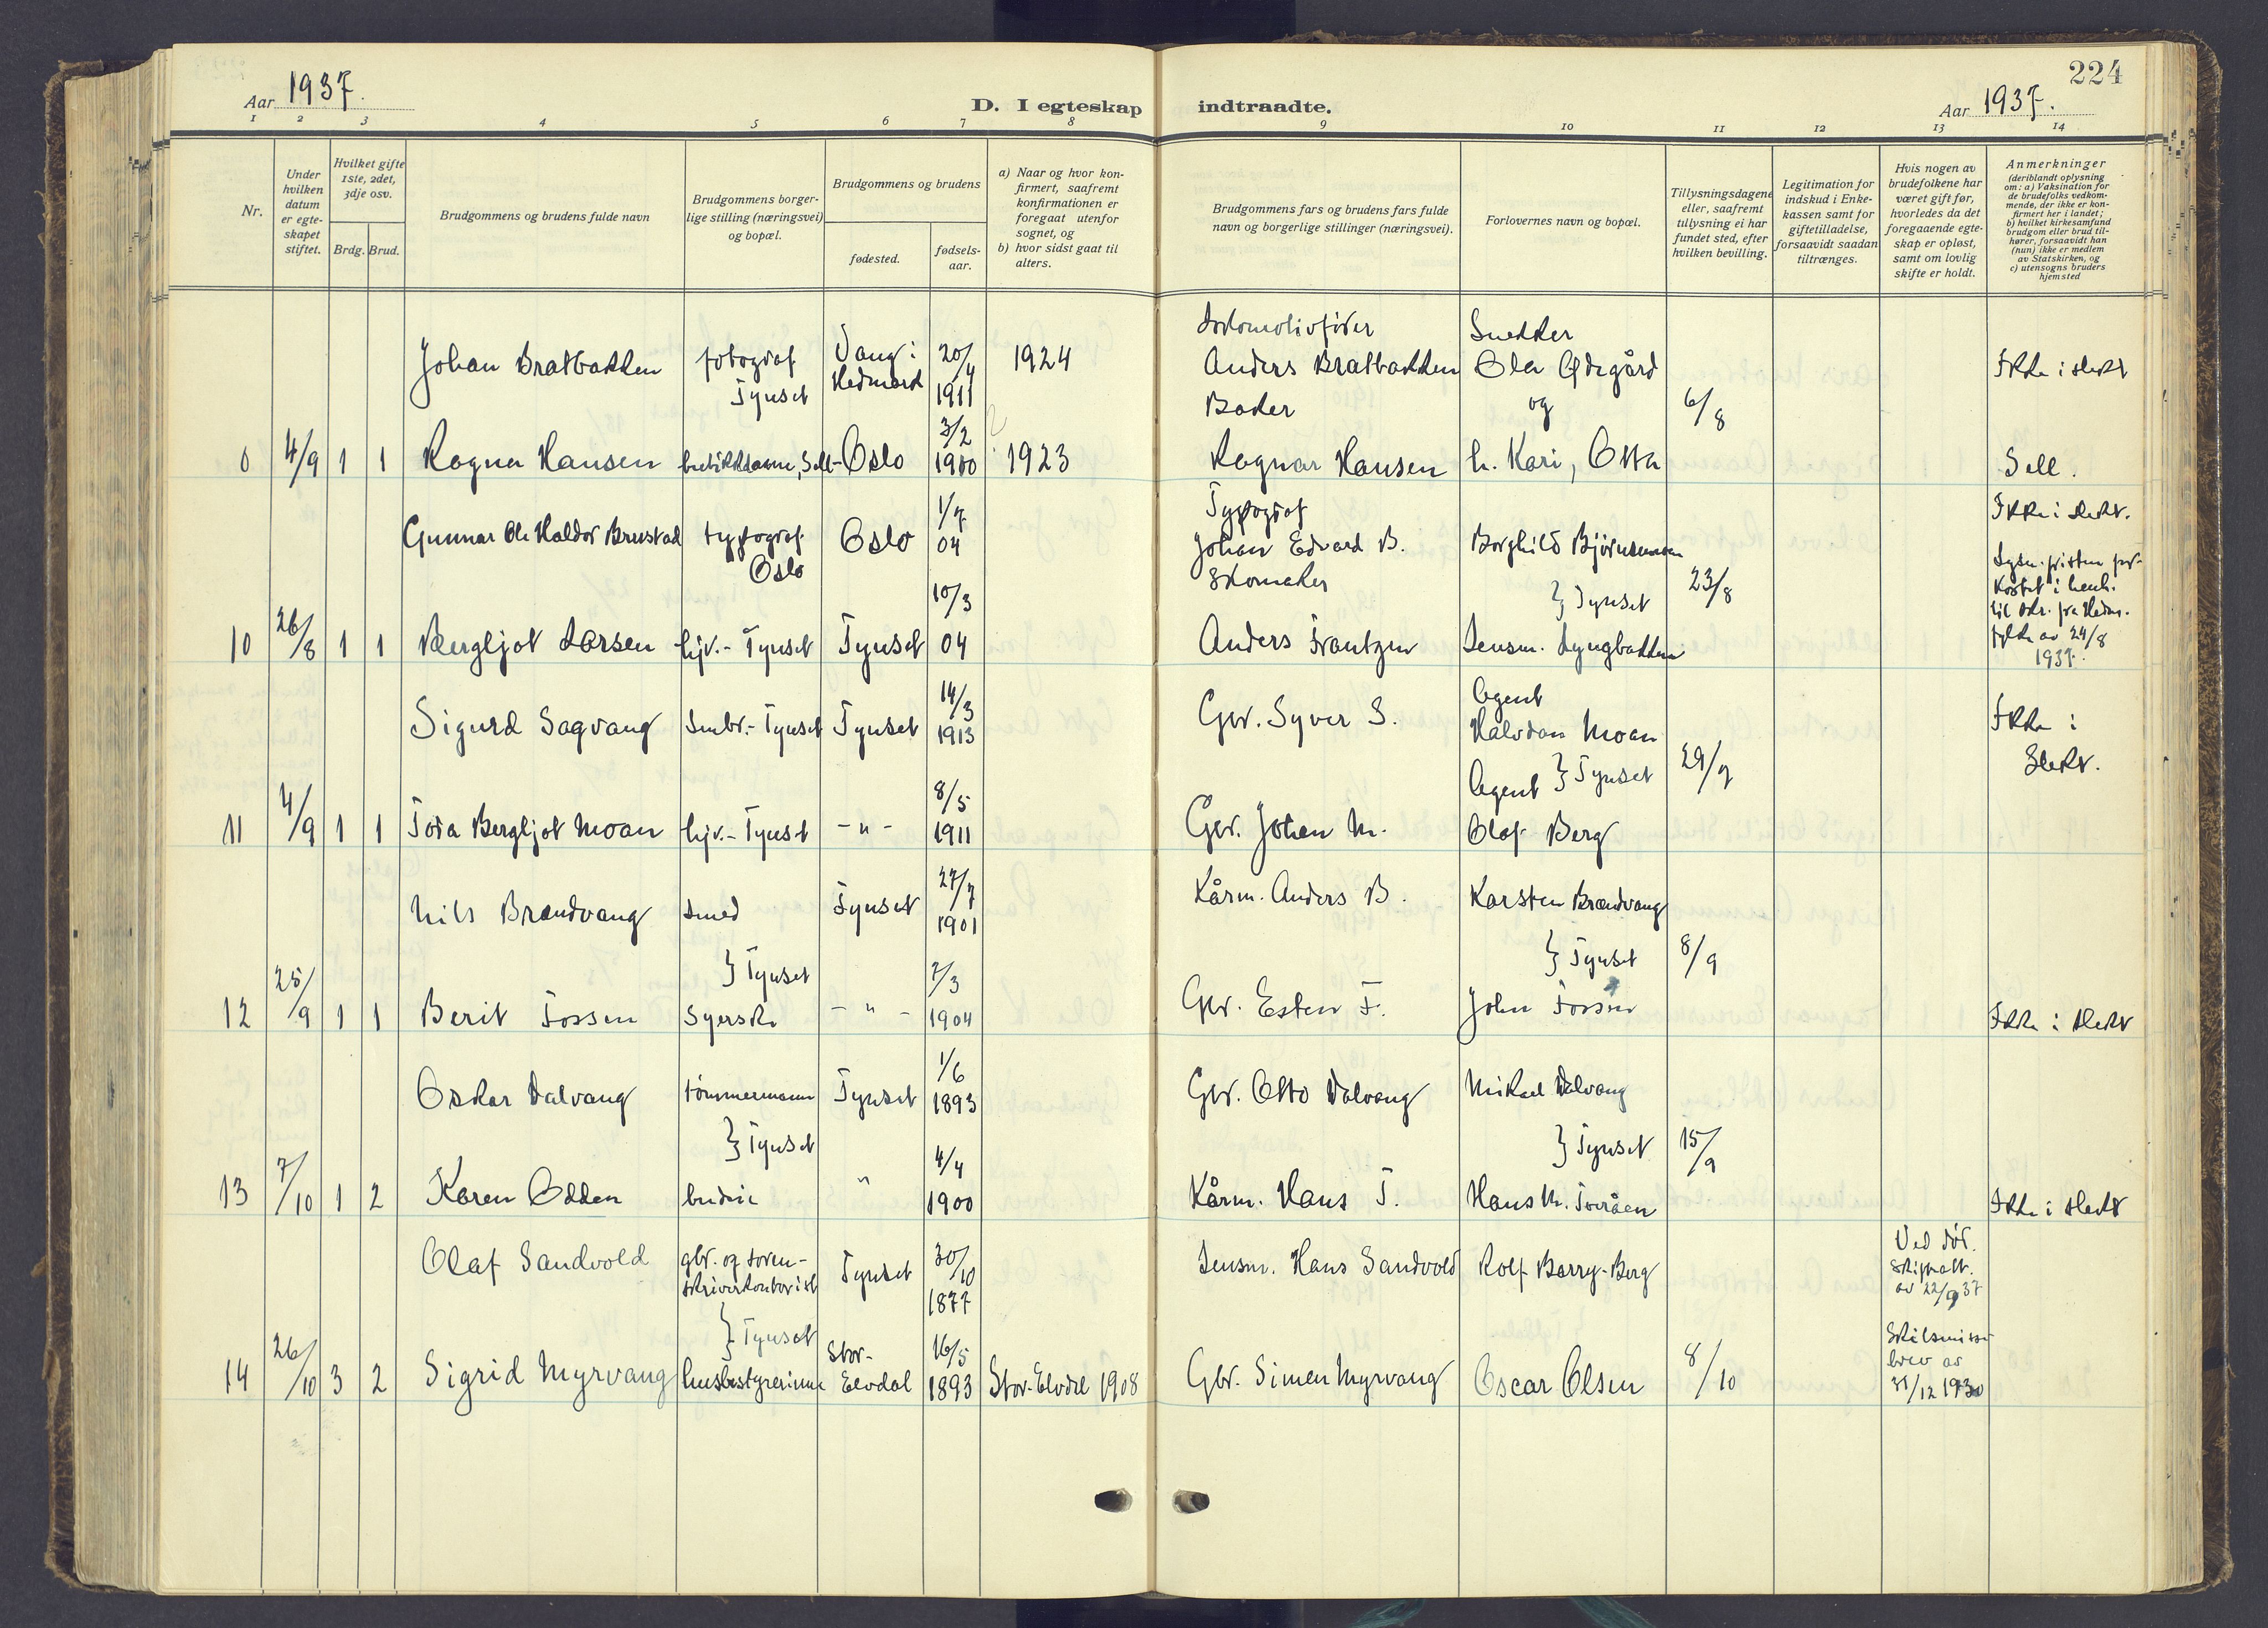 224
Aar 1937.
D. I egteskap indtraadte.
Aar 1937.
1 2 3 4 5 6 7 8 9 10 11 12 13 14
Nr.
Under hvilken datum er egte-skapet stiftet.
Hvilket gifte 1ste, 2det, 3dje osv.
Brdg. Brud.
Brudgommens og brudens fulde navn
Brudgommens borger-lige stilling (næringsvei) og bopæl.
Brudgommens og brudens
fødested.
fødsels-aar.
a) Naar og hvor kon-firmert, saafremt konfirmationen er foregaat utenfor sognet, og
b) hvor sidst gaat til alters.
Brudgommens fars og brudens fars fulde navn og borgerlige stillinger (næringsvei).
Forlovernes navn og bopæl.
Tillysningsdagene eller, saafremt tillysning ei har fundet sted, efter hvilken bevilling.
Legitimation for indskud i Enke-kassen samt for giftetilladelse, forsaavidt saadan tiltrænges.
Hvis nogen av brudefolkene har været gift før, hvorledes da det foregaaende egte-skap er opløst, samt om lovlig skifte er holdt.
Anmerkninger (deriblandt oplysning om: a) Vaksination for de brudefolks vedkom-mende, der ikke er kon-firmert her i landet; b) hvilket kirkesamfund brudgom eller brud til-hører, forsaavidt han (hun) ikke er medlem av Statskirken, og c) utensogns bruders hjemsted
Lokomotivfører Snekker
Johan Bratbakken fotograf Tynset Vang i Hedmark 20/4 1911 1924 Anders Bratbakken Ola Ødegård Ikke i slekt
Baker og 6/8
4/9 1 1 Ragna Hansen butikkdame, Sell- Oslo 3/2 1910 1923 Ragnar Hansen h. Kari, Otta Sell.
Typograf Ikke i slekt.
Gunnar Ole Haldor Brustad typograf Oslo Oslo 1/7 04 Johan Edvard B. Borghild Bjørnsmoen
Skomaker } Tynset 23/8
Lysn. fristen for-kortet i henh. til skr. fra Hedm. fylke av 24/8 1937.
10 26/8 1 1 Bergljot Larsen hjv.- Tynset Tynset 10/3 04 Anders Frantzen Lensm. Lyngbakken
Sigurd Sagvang Smbr.- Tynset Tynset 14/3 1913 Gbr. Syver S. Agent Halvdan Moan Ikke i Slekt.
} Tynset 29/9
11 4/9 1 1 Tora Bergljot Moan hjv.- Tynset - " - 8/5 1911 Gbr. Johan M. Agent Olaf Berg
Nils Brandvang smed Tynset 27/7 1901 Kårm. Anders B. Karsten Brandvang
} Tynset } Tynset 8/9
12 25/9 1 1 Berit Fossen Syerske - " - 7/3 1904 Gbr. Esten F. John Fossen Ikke i slekt
Oskar Dalvang tømmermann Tynset 1/6 1893 Gbr. Otto Dalvang Mikael Dalvang
} Tynset } Tynset 15/9
13 7/10 1 2 Karen Odden budeie " 4/4 1900 Kårm. Hans T. Hans M. Tveråen Ikke i slekt
Olaf Sandvold gbr. og soren-skriverkontorist Tynset 30/10 1877 Lensm. Hans Sandvold Rolf Barry-Berg Ved død. skifteatt. av 22/9 37
} Tynset
14 26/10 3 2 Sigrid Myrvang husbestyrerinne Stor-Elvdal 16/5 1893 Stor-Elvdal 1908 Gbr. Simen Myrvang Oscar Olsen 8/10 Skilsmisse brev av 31/12 1930